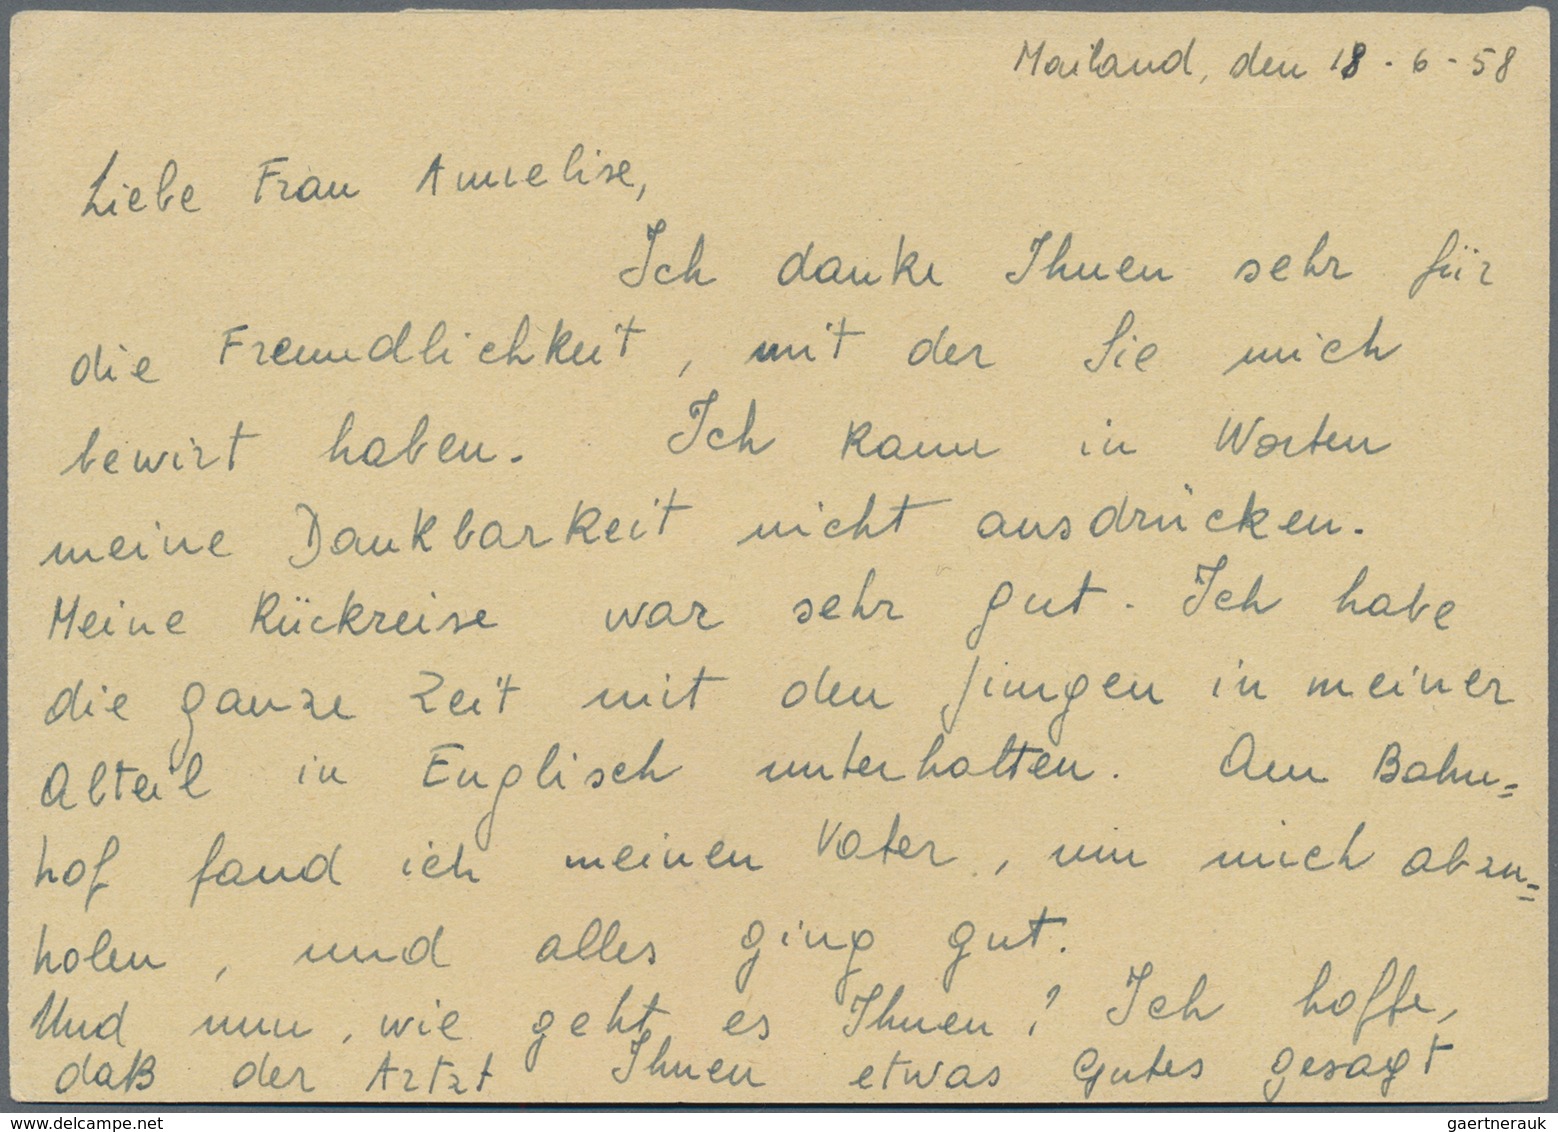 Mailand, den 18-6-58
Liebe Frau Annelise,
Ich danke Ihnen sehr für
die Freundlichkeit, mit der Sie mich
bewirt haben. Ich kann in Worten
meine Dankbarkeit nicht ausdrücken.
Meine Rückreise war sehr gut. Ich habe
die ganze Zeit mit den Jungen in meiner
Abteil in Englisch unterhalten. Am Bahn=
hof fand ich meinen Vater, um mich abzu=
holen, und alles ging gut.
Und nun, wie geht es Ihnen? Ich hoffe,
daß der Artzt Ihnen etwas Gutes gesagt
gaertnerauk @ delcampe.net